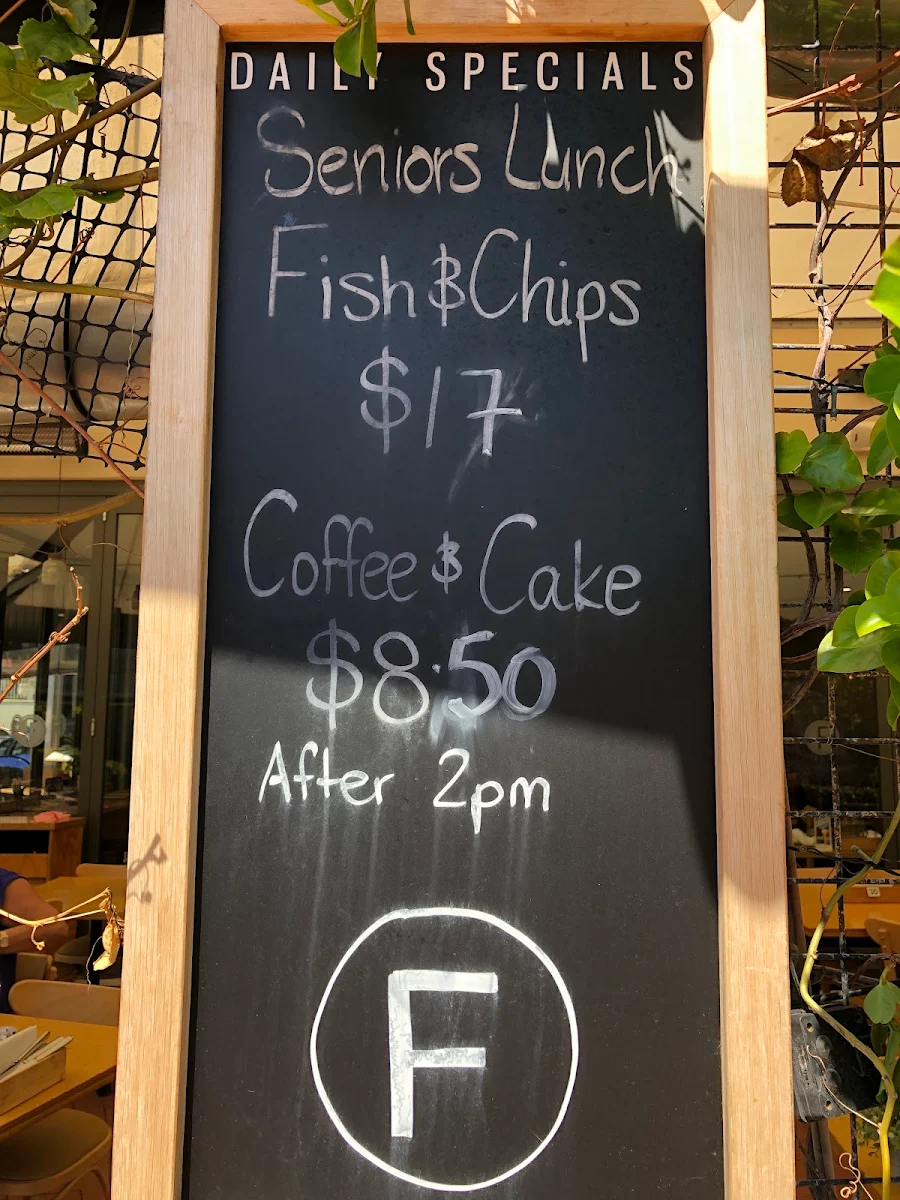 DAILY SPECIALS
Seniors Lunch
Fish & Chips
$17
Coffee & Cake
$8.50
After 2pm
F